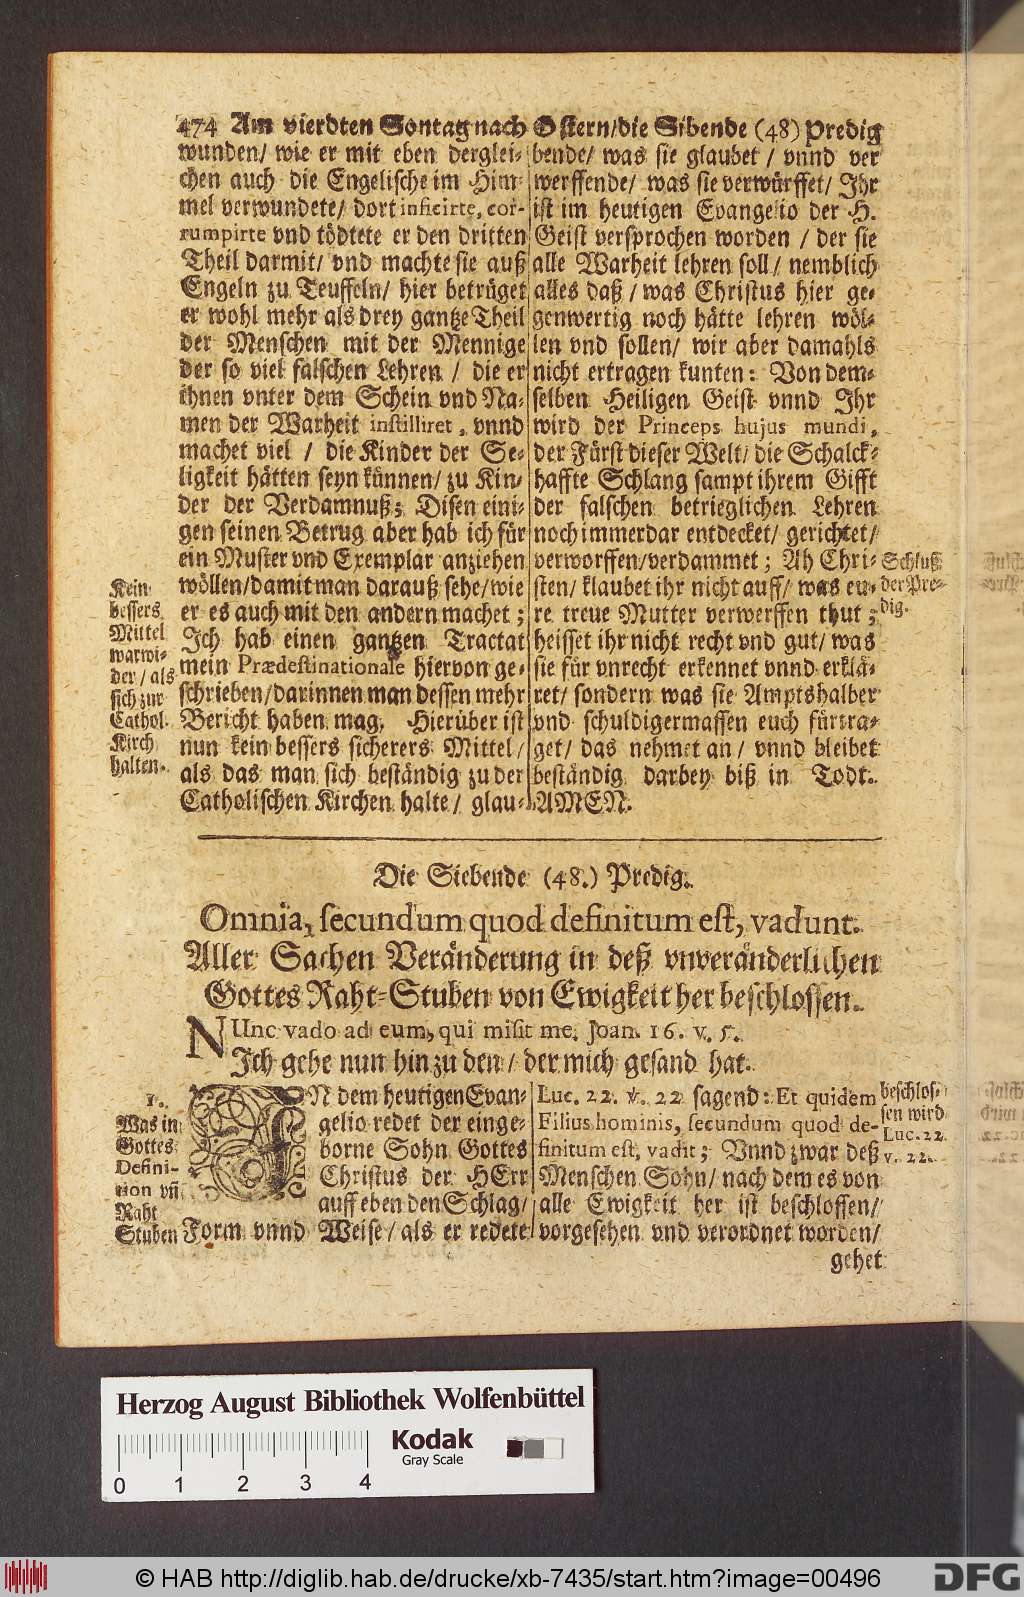 474 Am vierdten Sontag nach Ostern/die Sibende (48) Predig
wunden/ wie er mit eben derglei-
chen auch die Engelische im Him-
mel verwundete/ dort inficirte, cor-
rumpirte vnd tödtete er den dritten
Theil darmit/ vnd machte sie auß
Engeln zu Teuffeln/ hier betrüget
er wohl mehr als drey gantze Theil
der Menschen mit der Mennige
der so viel falschen Lehren / die er
ihnen vnter dem Schein vnd Na-
men der Warheit instilliret, vnnd
machet viel / die Kinder der Se-
ligkeit hätten seyn künnen/ zu Kin-
der der Verdamnuß; Disen eini-
gen seinen Betrug aber hab ich für
ein Muster vnd Exemplar anziehen
wöllen/damit man darauß sehe/wie
er es auch mit den andern machet;
Ich hab einen gantzen Tractat
mein Prædestinationale hiervon ge-
schrieben/darinnen man dessen mehr
Bericht haben mag. Hierüber ist
nun kein bessers sicherers Mittel/
als das man sich beständig zu der
Catholischen Kirchen halte/ glau-
Kein
bessers
Mittel
warwi-
der/ als
sich zur
Cathol.
Kirch
halten.
bende/ was sie glaubet / vnnd ver
werffende/ was sie verwürffet/ Ihr
ist im heutigen Evangelio der H.
Geist versprochen worden / der sie
alle Warheit lehren soll/ nemblich
alles daß/ was Christus hier ge-
genwertig noch hätte lehren wöl-
len vnd sollen/ wir aber damahls
nicht ertragen kunten: Von dem-
selben Heiligen Geist vnnd Ihr
wird der Princeps hujus mundi,
der Fürst dieser Welt/ die Schalck-
haffte Schlang sampt ihrem Gifft
der falschen betrieglichen Lehren
noch immerdar entdecket/ gerichtet/
verworffen/verdammet; Ah Chri-
sten/ klaubet ihr nicht auff/ was eu-
re treue Mutter verwerffen thut;
heisset ihr nicht recht vnd gut/ was
sie für vnrecht erkennet vnnd erklä-
ret/ sondern was sie Amptshalber
vnd schuldigermassen euch fürtra-
get/ das nehmet an/ vnnd bleibet
beständig darbey biß in Todt.
AMEN.
Schluß
der Pre-
dig.
Die Siebende (48.) Predig.
Omnia, secundum quod definitum est, vadunt.
Aller Sachen Veränderung in deß vnveränderlichen
Gottes Raht-Stuben von Ewigkeit her beschlossen.
NUnc vado ad eum, qui misit me. Joan. 16. v. 5.
Ich gehe nun hin zu den/ der mich gesand hat.
1.
Was in
Gottes
Defini-
tion vñ
Raht
Stuben
IN dem heutigen Evan-
gelio redet der einge-
borne Sohn Gottes
Christus der HErr
auff eben den Schlag/
Form vnnd Weise/ als er redete
Luc. 22. v. 22 sagend: Et quidem
Filius hominis, secundum quod de-
finitum est, vadit; Vnnd zwar deß
Menschen Sohn/ nach dem es von
alle Ewigkeit her ist beschlossen/
vorgesehen vnd verordnet worden/
gehet
beschlos-
sen wird
Luc. 22.
v. 22.
Herzog August Bibliothek Wolfenbüttel
Kodak
Gray Scale
0 1 2 3 4
© HAB http://diglib.hab.de/drucke/xb-7435/start.htm?image=00496
DFG